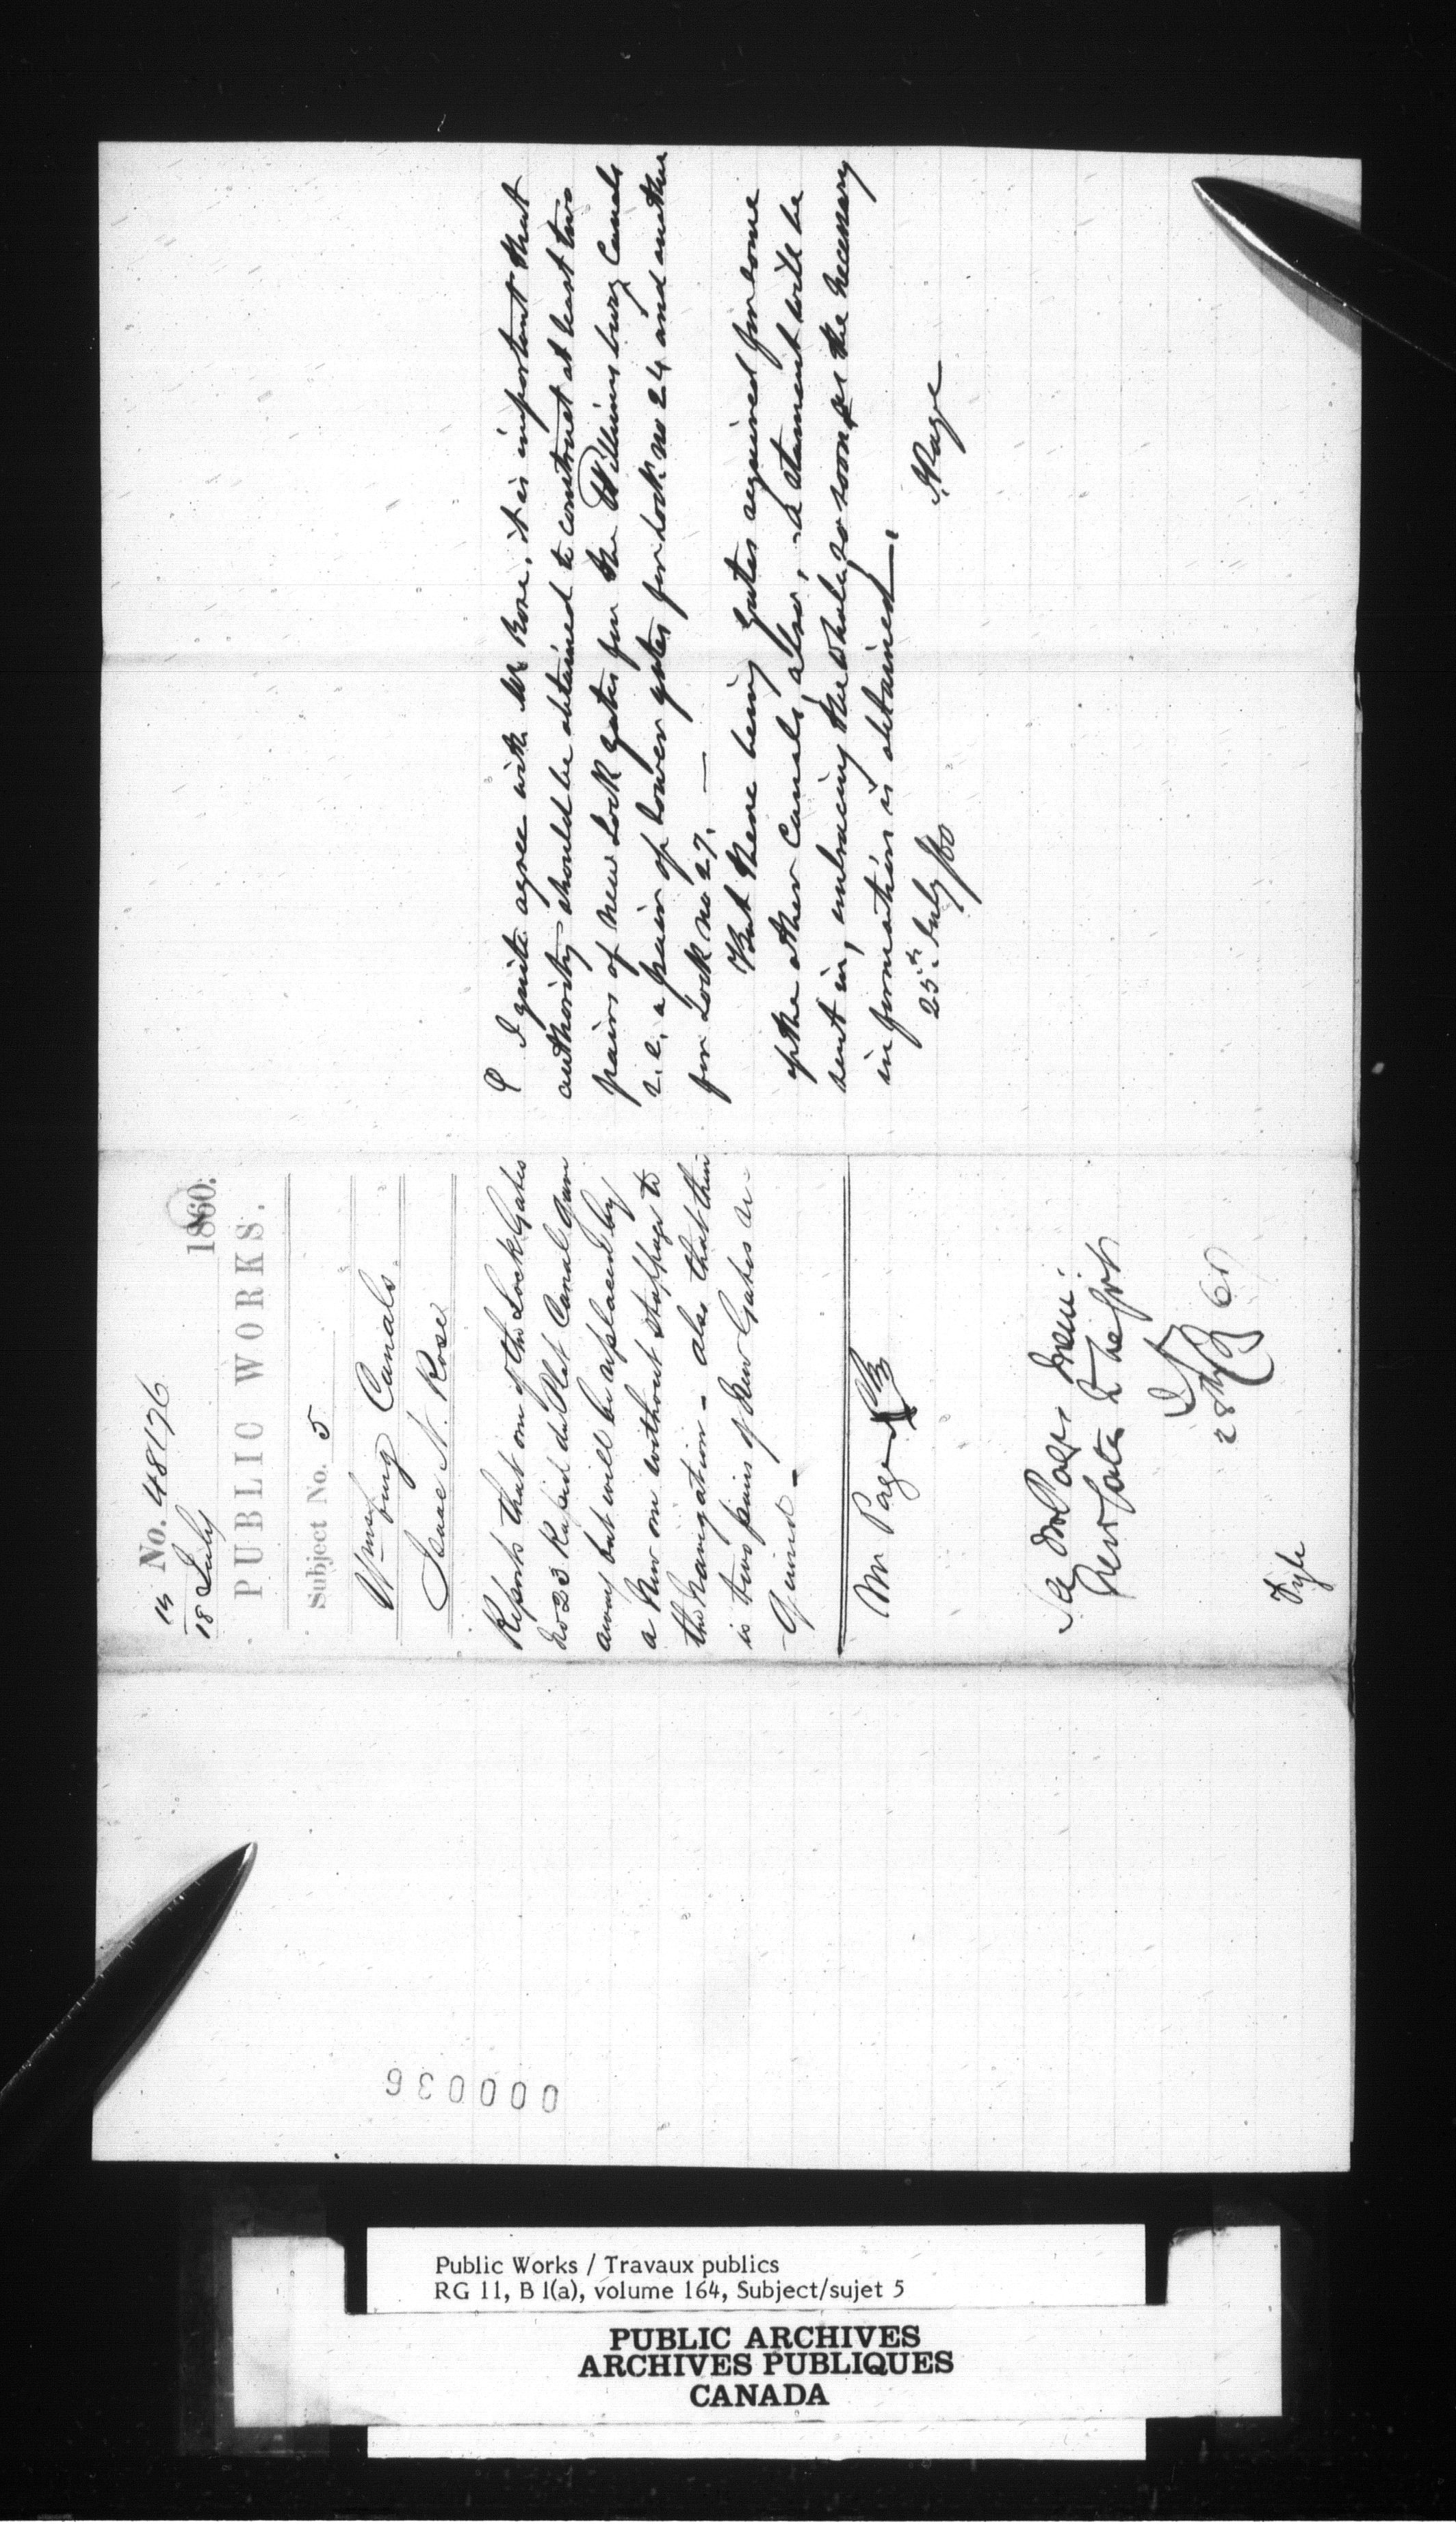 No. 48176
14
18 July 1860.
PUBLIC WORKS.
Subject No. 5
Wmsburg Canals.
Isaac N. Rose
Reports that one of the Lock Gates
No 23 Rapid du Plat Canal gave
away but will be replaced by
a New one without stoppage to
the Navigation - also that there
is two pairs of New Gates re-
quired -
Mr Page
See Mr Page's Mem:
New Gates
28 July 60
Fyle
I quite agree with Mr Rose, it is important that
authority should be obtained to construct at least two
pairs of new Lock gates for the Williamsburg Canals
i.e. a pair of lower gates for Lock no 24 and another
for Lock no 27. —
But there being gates required for some
of the other Canals, also, a statement will be
sent in, embracing the whole so soon as the necessary
information is obtained.
25th July /60 J Page
000036
Public Works / Travaux publics
RG 11, B 1(a), volume 164, Subject/sujet 5
PUBLIC ARCHIVES
ARCHIVES PUBLIQUES
CANADA